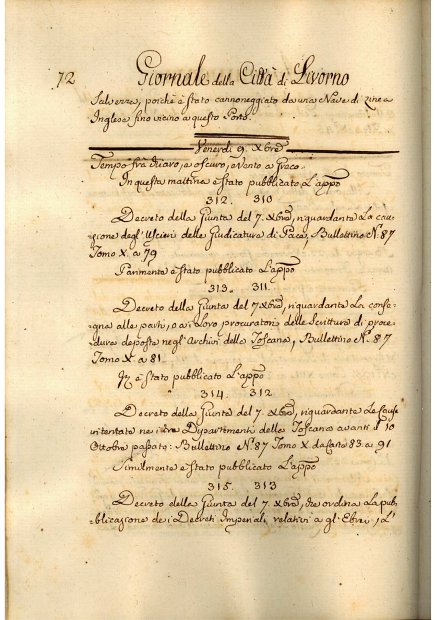 72 Giornale della Città di Livorno
Salvezza, poichè è stato cannoneggiato da una Nave di Linea
Inglese fino vicino a questo Porto.
Venerdì 9. Xbre
Tempo frà chiaro, e oscuro, e Vento a Greco
In questa mattina è stato pubblicato L'appo
312. 310
Decreto della Giunta del 7. Xbre, riguardante La cau=
zione degl'Uscieri delle Giudicature di Pace, Bullettino N.° 87
Tomo X. a 79
Parimente è stato pubblicato L'appo
313. 311.
Decreto della Giunta del 7 Xbre, riguardante La conse=
gna alle parti, o ai Loro procuratori delle Scritture di proce=
dura deposte negl'Archivi della Toscana, Bullettino N.° 87
Tomo X a 81.
It è stato pubblicato L'appo
314. 312
Decreto della Giunta del 7. Xbre, riguardante Le Cause
intentate nei tre Dipartimenti della Toscana avanti il 10
Ottobre passato: Bullettino N.° 87 Tomo X da Carte 83 a 91
Similmente è stato pubblicato L'appo
315. 313
Decreto della Giunta del 7. Xbre, che ordina La pub=
blicazione dei Decreti Imperiali relativi a gl'Ebrei, L'